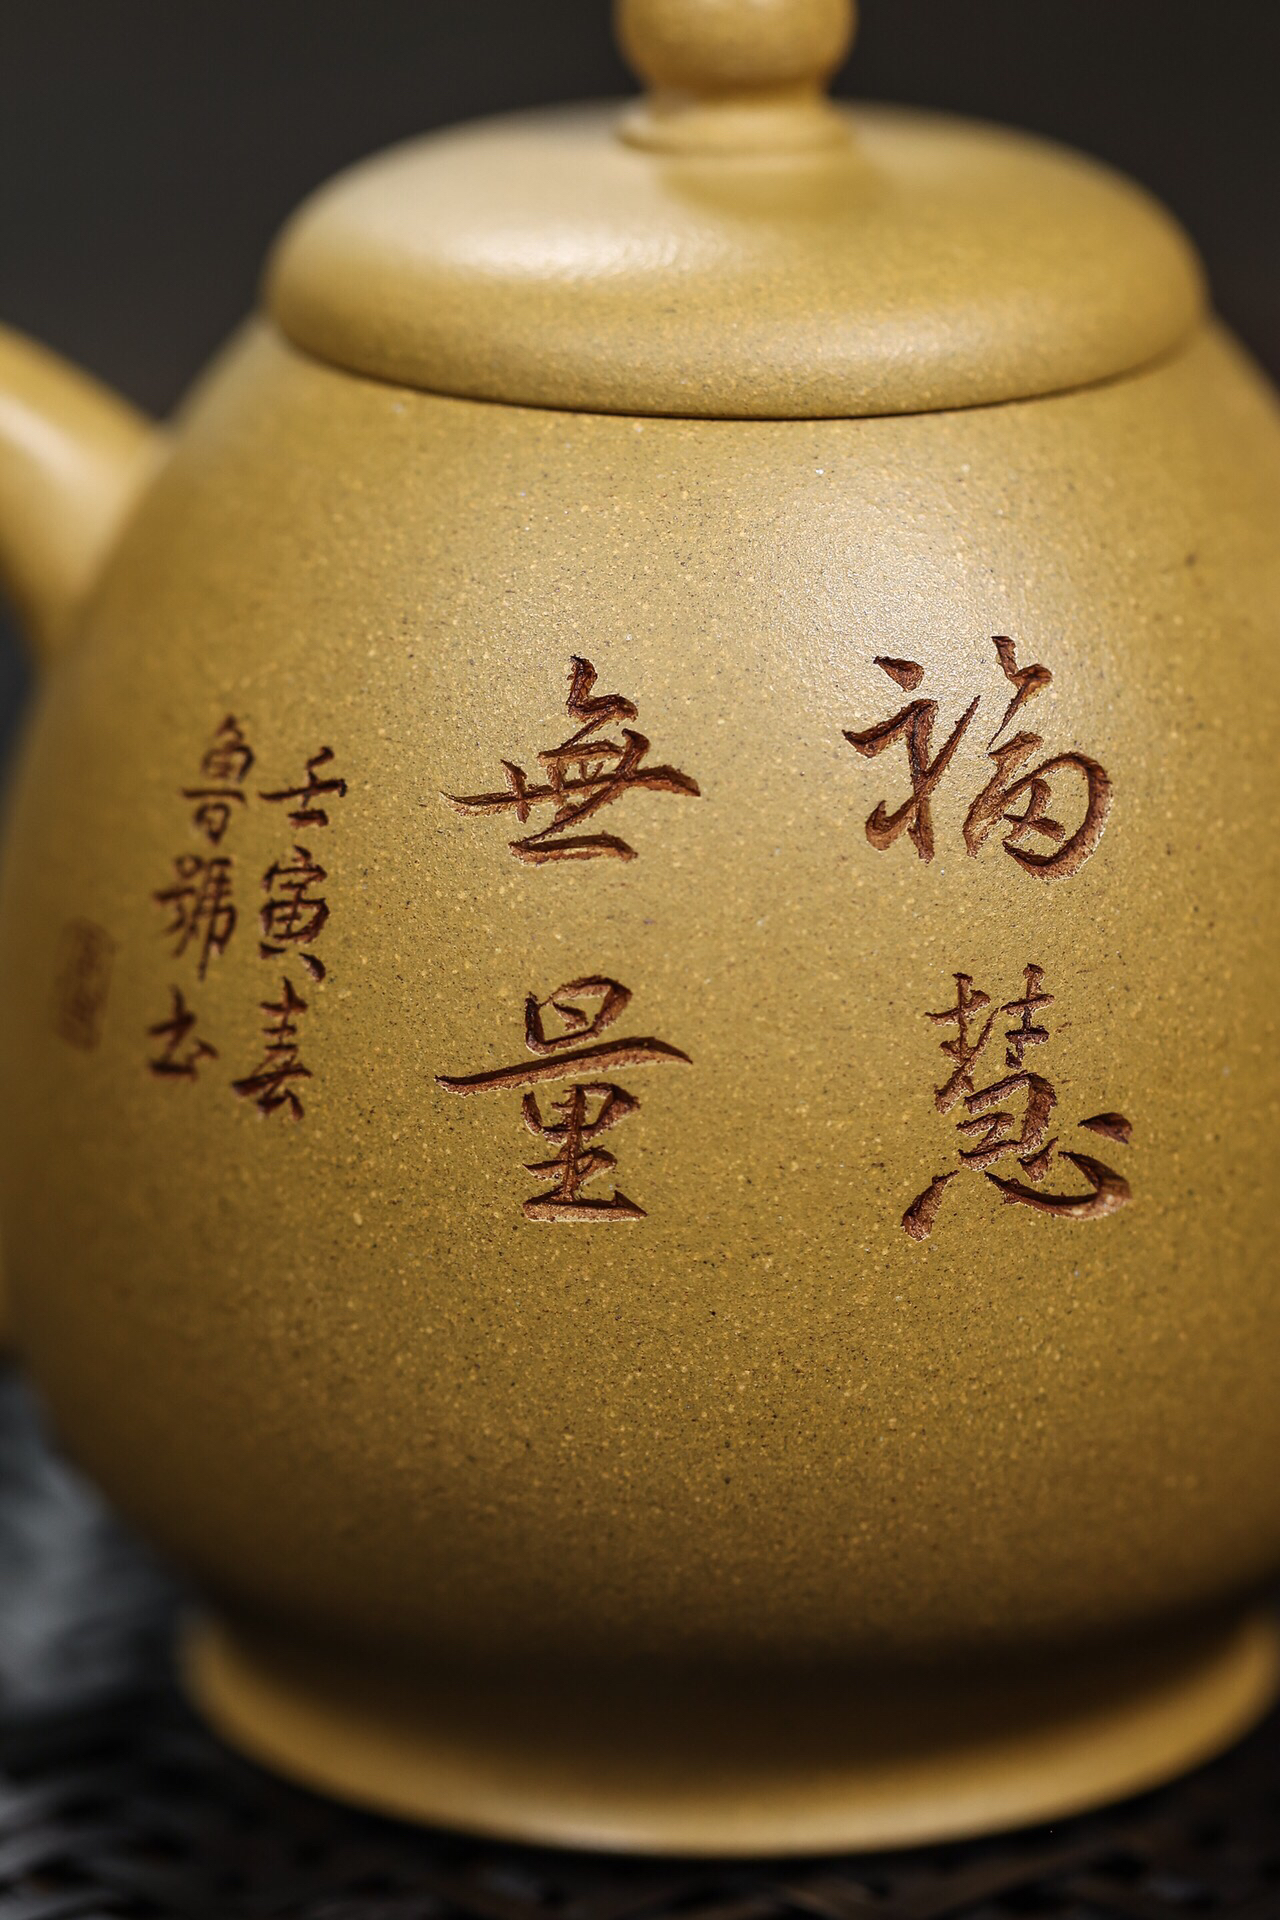 福慧
無量
壬寅春
魯號書